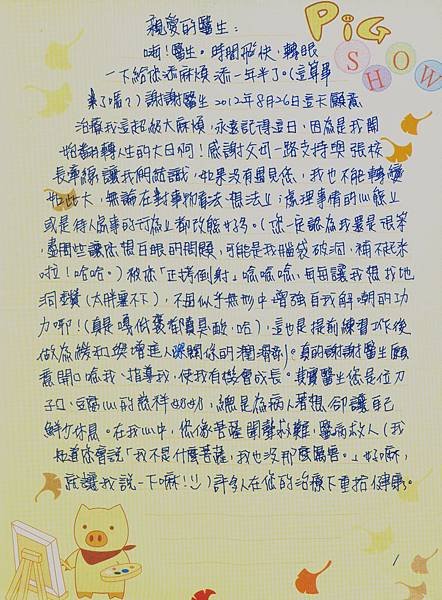 PiG
SHOW
親愛的醫生:
嗨!醫生。時間飛快,轉眼
一下給您添麻煩添一年半了。(這算畢
業了嗎?)謝謝醫生2012年8月26日這天願意
治療我這超級大麻煩,永遠記得這日,因為是我開
始翻轉人生的大日啊!感謝父母一路支持與張校
長牽線讓我們認識,如果沒有遇見您,我也不能轉變
如此大,無論在對事物看法、想法上;處理事情的心態上
或是待人處事的行為上都改變好多。(您一定認為我還是很笨
,盡問些讓您想白眼的問題,可能是我腦袋破洞,補不起來
啦!哈哈。)被您「正拷倒射」唸唸唸,每每讓我想找地
洞鑽(太胖塞不下),不過似乎無形中增強自我解嘲的功
力耶!(真是嘎低褒者的真是酷,哈),這也是提前練習工作後
做為緩和與增進人際關係的潤滑劑。真的謝謝醫生願
意開口唸我、指導我,使我有機會成長。其實醫生您是位刀
子口、豆腐心的慈祥奶奶,總是為病人著想卻讓自己
鮮少休息。在我心中,您像菩薩聞聲救難,醫病救人(我
知道您會說「我不是什麼菩薩,我也沒那麼厲害。」好嘛,
就讓我說一下嘛!)許多人在您的治療下重拾健康。
1